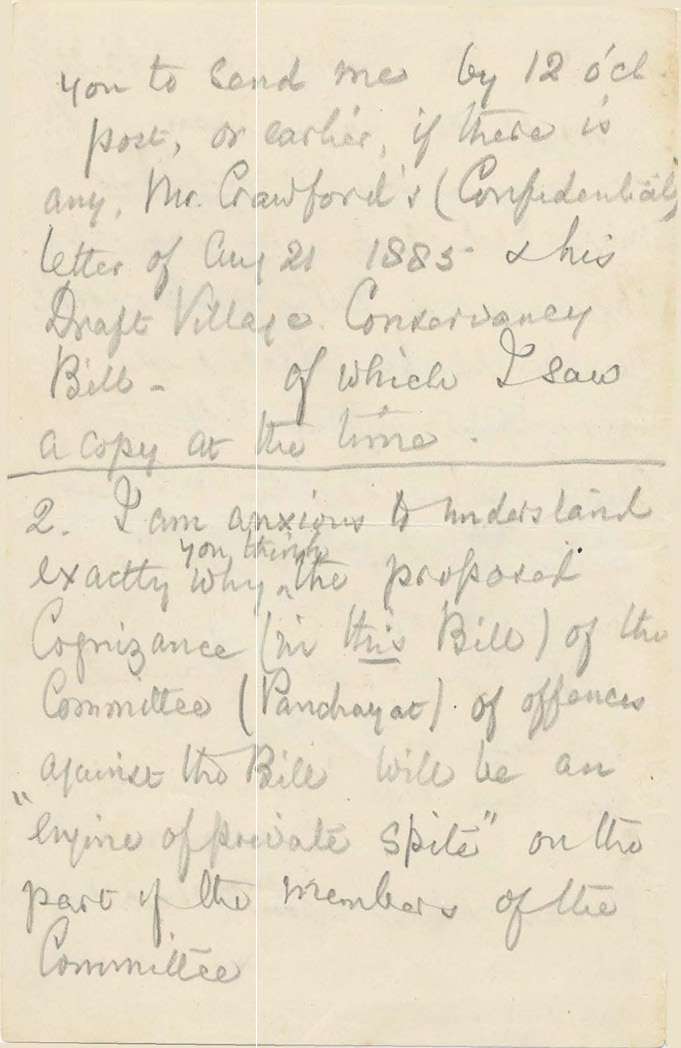 you to send me by 12 o'cl.
post, or earlier, if there is
any, Mr. Crawford's (Confidential)
letter of Aug 21 1885 & his
Draft Village Conservancy
Bill - of which I saw
a copy at the time.
2. I am anxious to understand
exactly why you think the proposed
Cognizance (in this Bill) of the
Committee (Panchayat) of offences
against the Bill will be an
"engine of private spite" on the
part of the members of the
Committee